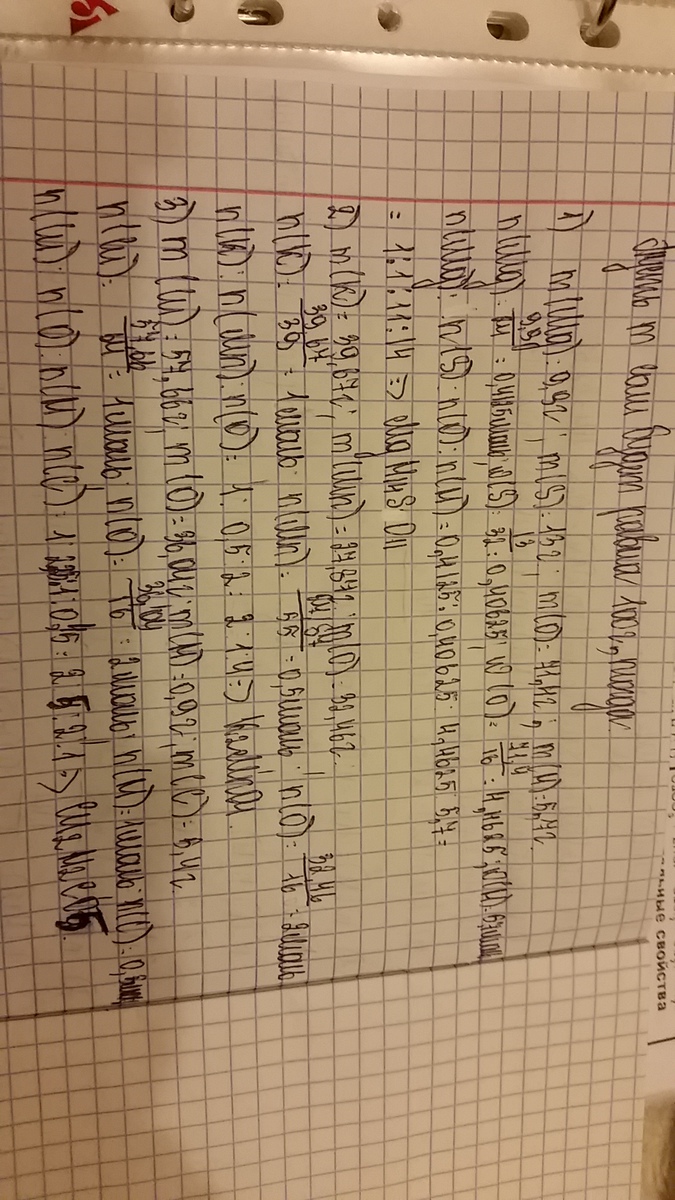 Пусть m соли будет равна 100г, тогда:
1) m(Mg)=9,9г; m(S)=13г; m(O)=71,4г; m(H)=5,7г.
n(Mg)= 9,9/24 = 0,4125моль; n(S)= 13/32 = 0,40625; n(O)= 71,4/16 = 4,4625; n(H)=5,7моль
n(Mg): n(S): n(O): n(H)=0,4125:0,40625:4,4625:5,7=
= 1:1:11:14 =>
2) m(K)=39,67г; m(Mn)=27,87г; m(O)=32,46г.
n(K)= 39,67/39 = 1моль; n(Mn)= 27,87/55 = 0,5моль; n(O)= 32,46/16 = 2моль
n(K): n(Mn): n(O)= 1:0,5:2 = 2:1:4 =>
3) m(Cu)=57,66г; m(O)=36,04г; m(H)=0,9г; m(C)=5,4г.
n(Cu)= 57,66/64 = 1моль; n(O)= 16 = 2моль;
n(Cu): n(O): n(H): n(C)=
ные свойства